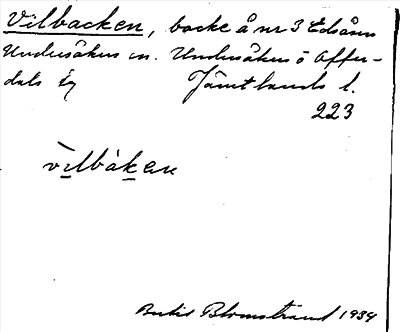 Vilbacken, backe å nr 3 Edsåsen
Undersåkers sn. Undersåkers o Offer-
dals tg Jämtlands l.
223
vìlbàken
Bertil Blomstrand 1934